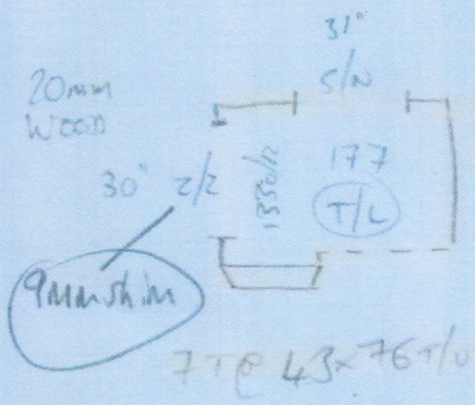 31"
S/N
20mm
WOOD
30"
177
T/L
9mm shim
7T@ 43x76 T/U